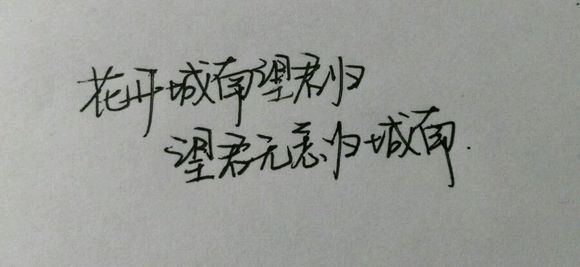 花开城南望君归
望君无意归城南.